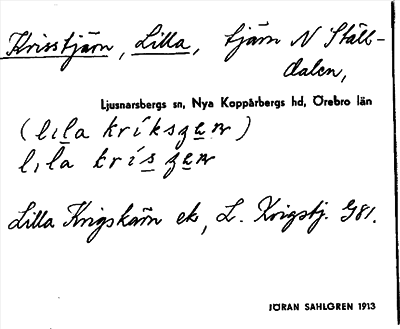 Krisstjärn, Lilla, tjärn N Ställ-
dalen,
Ljusnarsbergs sn, Nya Kopparbergs hd, Örebro län
(lıla kríksɟæ̨n)
lıla krís ɟæ̨n
Lilla Krigskärn ek, L. Krigstj. G81.
JÖRAN SAHLGREN 1913